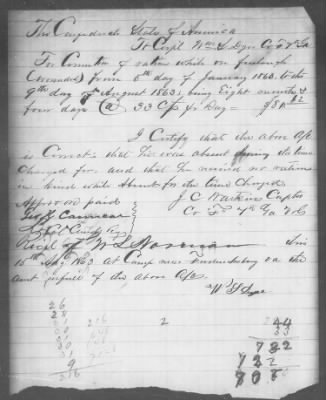 The Confederate States of America
To Corpl Wm S Dyer Co F 4 Ga
For Commutation of rations while on furlough
(wounded) from 6th day of January 1863, to the
9th day of August 1863, being Eight months &
four days @ 33 Cts pr Day =
I Certify that the above a/c
is Correct; that he was absent during the time
Charged for, and that he received no rations
in kind while absent for the time Charged
Approved paid
J C Watkins Capt
Co F 4 Ga
Recd of W L Norman this
15th Aug 1863 at Camp near Fredericksburg Va the
amt in full of the above a/c
W S Dyer
26
28
31
30
31
30
31
9
216
2
44
33
732
732